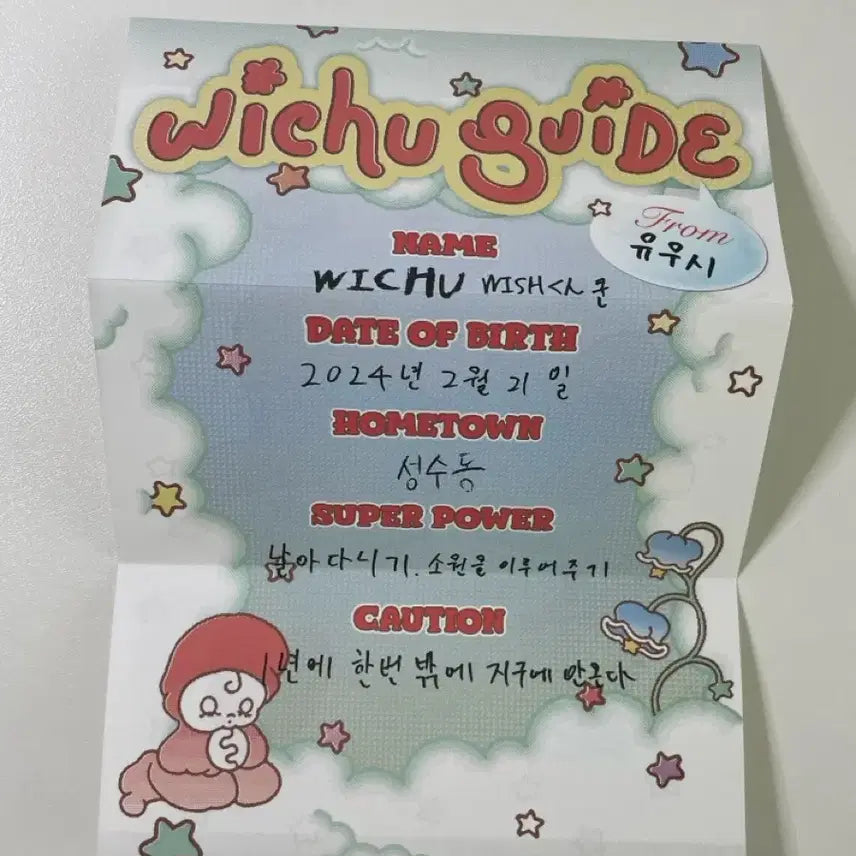 wichu guide
From
유우시
NAME
WICHU WISHくん 쿤
DATE OF BIRTH
2024년 2월 21일
HOMETOWN
성수동
SUPER POWER
날아다니기. 소원을 이루어주기
CAUTION
1년에 한번 밖에 지구에 안온다